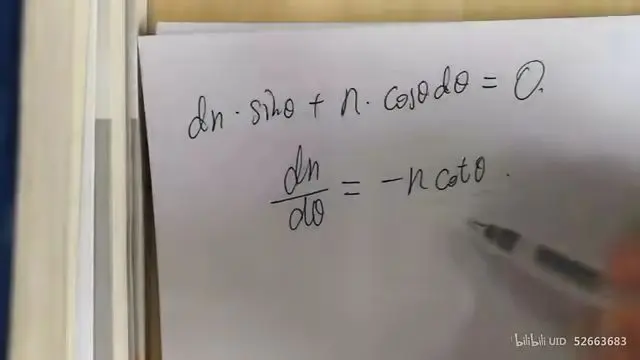 dn · sinθ + n · cosθdθ = 0.
dn/dθ = -n cotθ.
bilibili UID 52663683